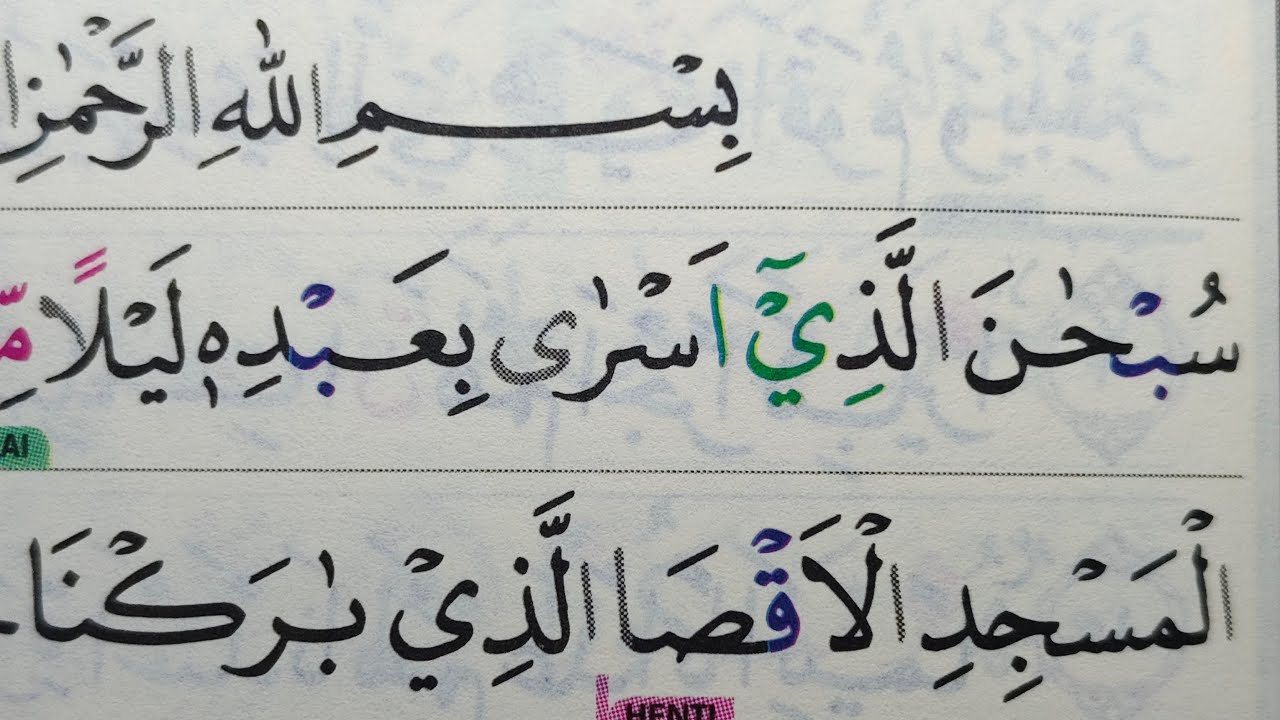 بِسْمِ اللّٰهِ الرَّحْمٰنِ ا
سُبْحٰنَ الَّذِيْٓ اَسْرٰى بِعَبْدِهٖ لَيْلًا مِّ
AI
الْمَسْجِدِ الْاَقْصَا الَّذِيْ بٰرَكْنَا
HENTI